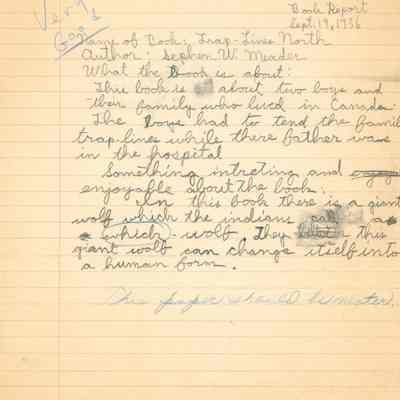 Very Good
Book Report
Sept. 19, 1956
Name of Book: Trap-Lines North
Author: Sephen W. Meader
What the book is about:
This book is about two boys and
their family who lived in Canada.
The boys had to tend the famil
trap-lines while there father was
in the hospital
Something intreting and
enjoyable about the book:
In this book there is a giant
wolf which the indians call a
which-wolf. They belet this
giant wolf can change itself into
a human form.
This paper should be neater.